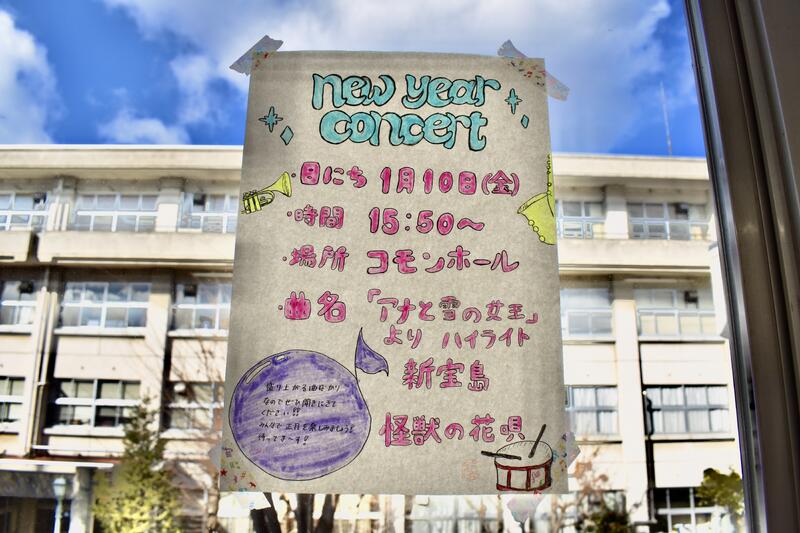 new year
concert
・日にち 1月10日(金)
・時間 15:50~
・場所 コモンホール
・曲名 「アナと雪の女王」
より ハイライト
新宝島
怪獣の花唄
盛り上がる曲ばかり
なのでぜひ聞きにきて
ください!!
みんなで正月を楽しみましょう!
待ってま~す!